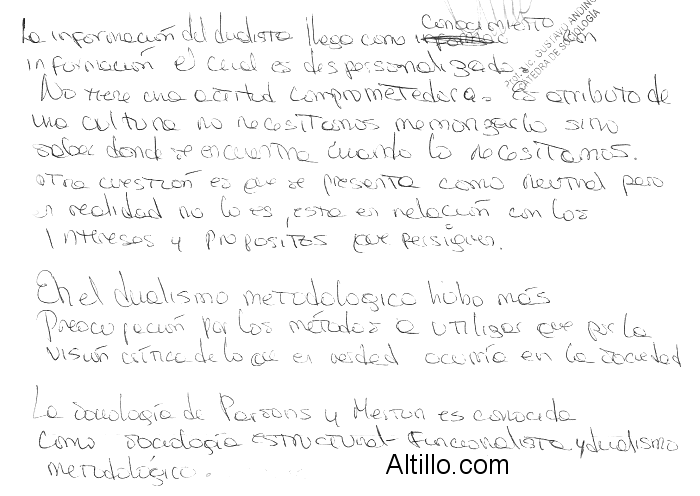 Conocimiento
La información del dualista llega como informac con
información el cual es despersonalizado.
PROF. LIC. GUSTAVO ANDINO
CATEDRA DE SOCIOLOGÍA
No tiene una actitud comprometedora. Es atributo de
una cultura no necesitamos memorizarlo sino
saber donde se encuentra cuando lo necesitamos.
otra cuestión es que se presenta como neutral pero
en realidad no lo es, esta en relación con los
intereses y propositos que persiguen.
En el dualismo metodologico hubo más
preocupación por los métodos a utilizar que por la
visión crítica de lo que en verdad ocurría en la sociedad
La sociología de Parsons y Merton es conocida
como sociología estructural-funcionalista y dualismo
metodológico.
Altillo.com